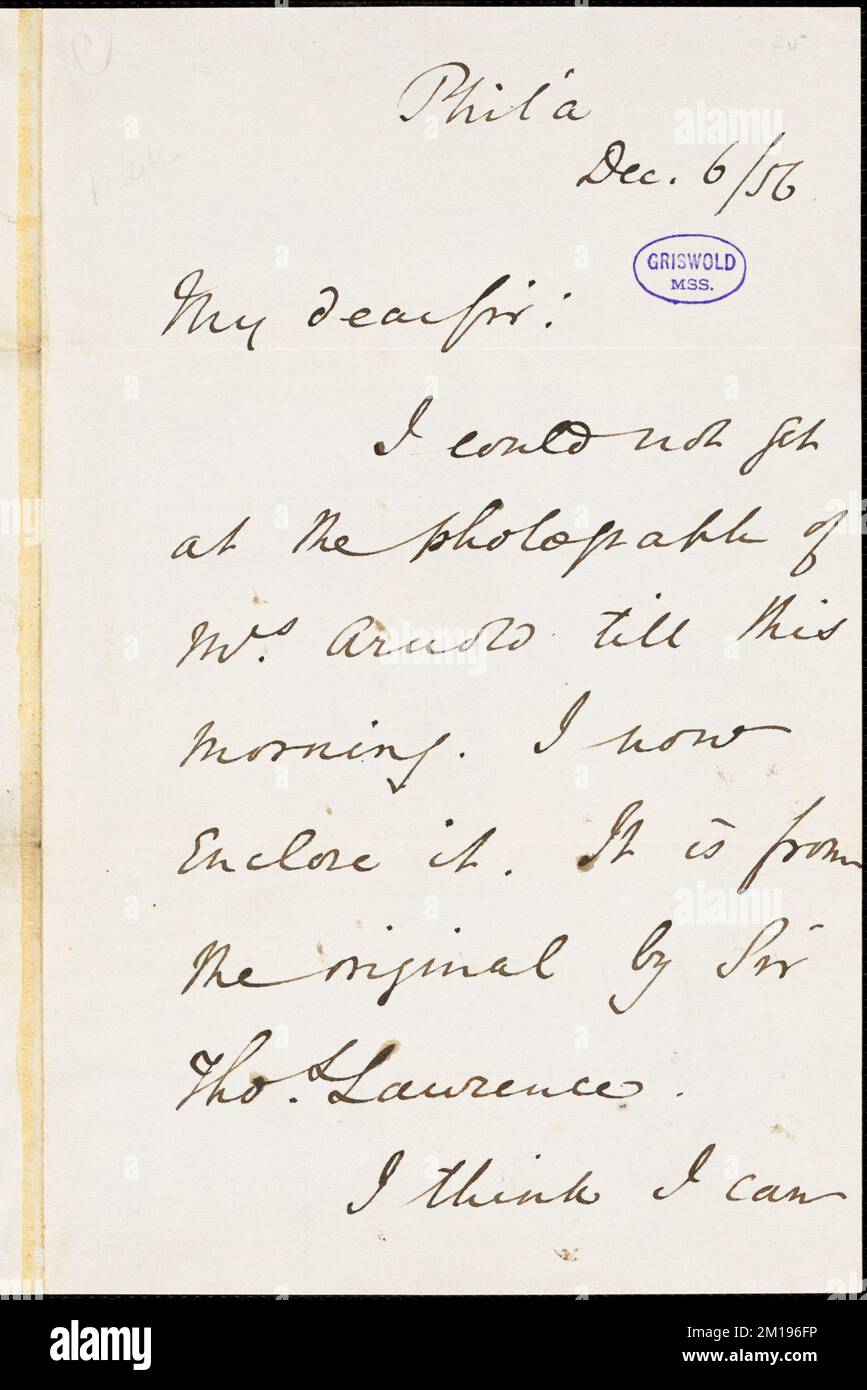 Phil'a
Dec. 6/56
GRISWOLD
MSS.
My dear Sir:
I could not get
at the photograph of
Mrs. Arnold till this
morning. I now
Enclose it. It is from
the original by Sir
Thos. Lawrence.
I think I can
alamy
Image ID: 2M196FP
www.alamy.com